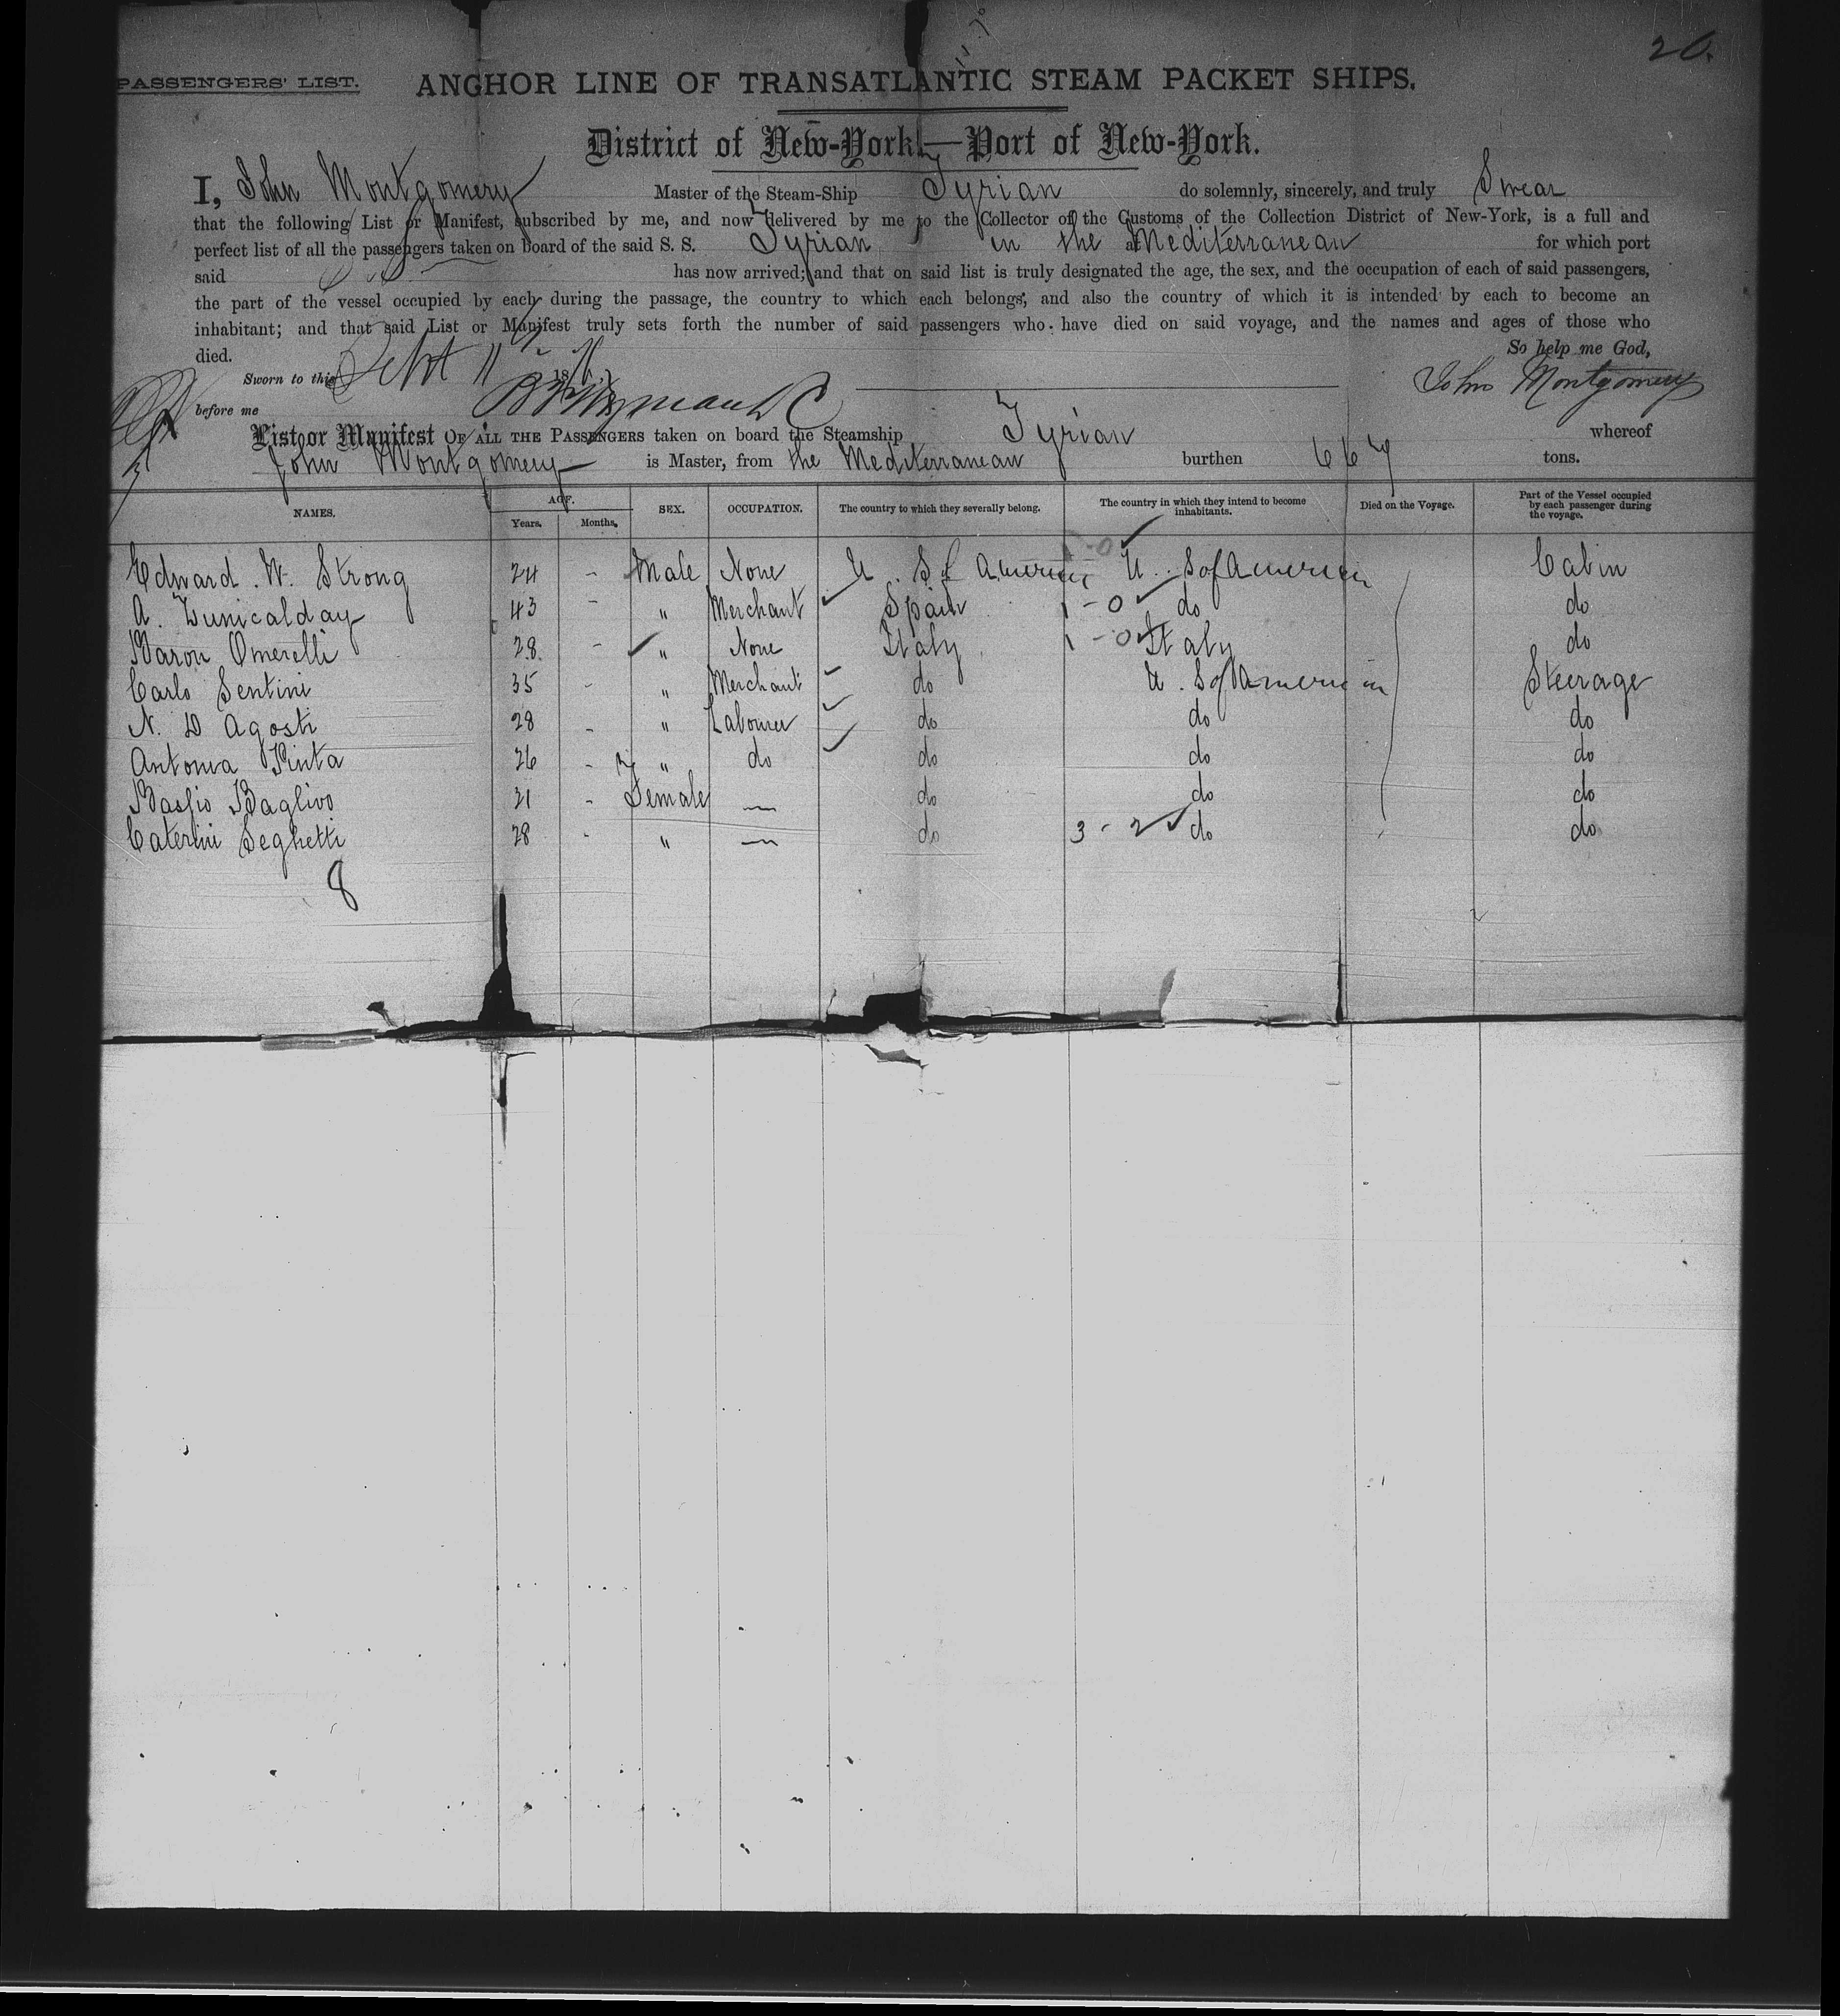 20.
PASSENGERS' LIST. ANCHOR LINE OF TRANSATLANTIC STEAM PACKET SHIPS.
District of New-York—Port of New-York.
I, John Montgomery Master of the Steam-Ship Tyrian do solemnly, sincerely, and truly Swear
that the following List or Manifest, subscribed by me, and now delivered by me to the Collector of the Customs of the Collection District of New-York, is a full and
perfect list of all the passengers taken on board of the said S. S. Tyrian in the at Mediterranean for which port
said has now arrived; and that on said list is truly designated the age, the sex, and the occupation of each of said passengers,
the part of the vessel occupied by each during the passage, the country to which each belongs, and also the country of which it is intended by each to become an
inhabitant; and that said List or Manifest truly sets forth the number of said passengers who have died on said voyage, and the names and ages of those who
died. So help me God,
Sworn to this Sept 11 18 John Montgomery
before me
List or Manifest OF ALL THE PASSENGERS taken on board the Steamship Tyrian whereof
John Montgomery is Master, from the Mediterranean burthen 667 tons.
NAMES. AGE. Years. Months. SEX. OCCUPATION. The country to which they severally belong. The country in which they intend to become inhabitants. Died on the Voyage. Part of the Vessel occupied by each passenger during the voyage.
Edward . W. Strong 24 - Male None U . S of America U . S of America Cabin
A. Zunicalday 43 - " Merchant Spain 1 - 0 do do
Baron Omerelli 28 - " None Italy 1 - 0 Italy do
Carlo Sentini 35 - " Merchant do U . S of America Steerage
N. D Agosti 28 - " Labourer do do do
Antonia Pinta 26 - " do do do do
Bassio Baglivo 21 - Female — do do do
Caterini Seghetti 28 - " — do 3 - 2 do do
8